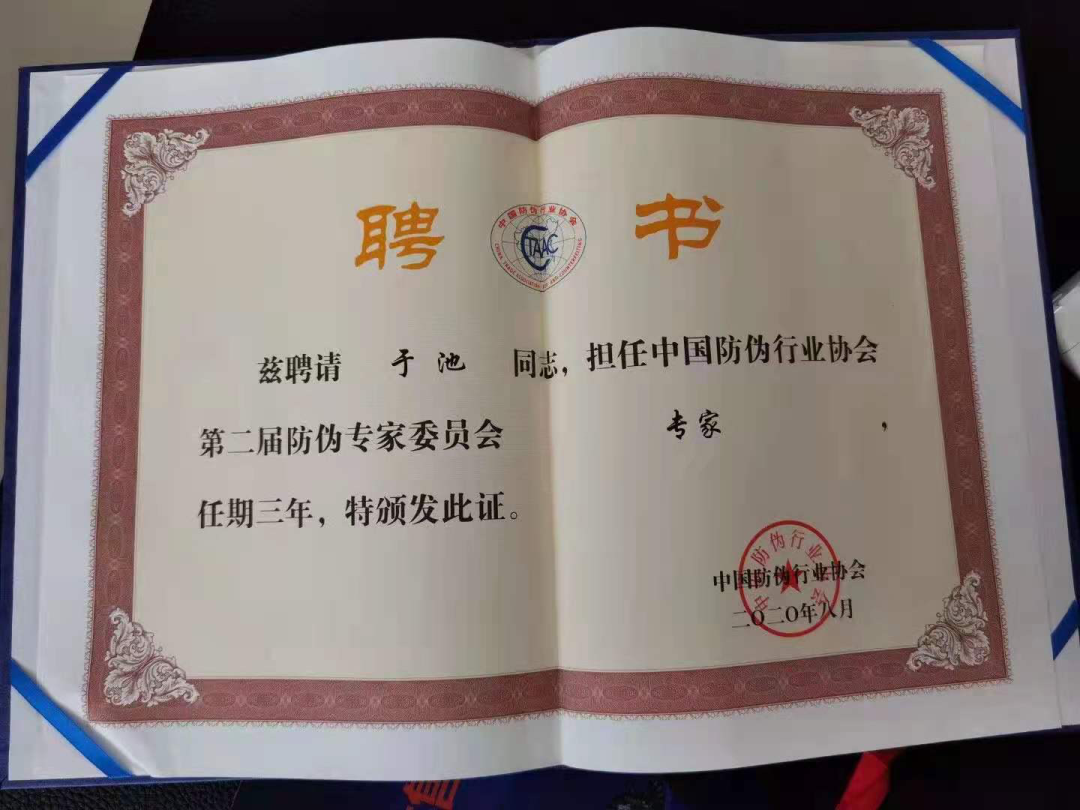 聘 书
中国防伪行业协会
CTAAC
CHINA TRADE ASSOCIATION OF ANTI-COUNTERFEITING
兹聘请 于池 同志，担任中国防伪行业协会
第二届防伪专家委员会 专家 ，
任期三年，特颁发此证。
中国防伪行业协会
二〇二〇年八月
中国防伪行业协会